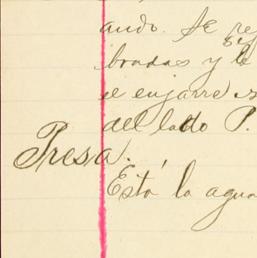 ando. Se re
bradas y le
se enjarre
del lado P.
Presa.
Está la agua